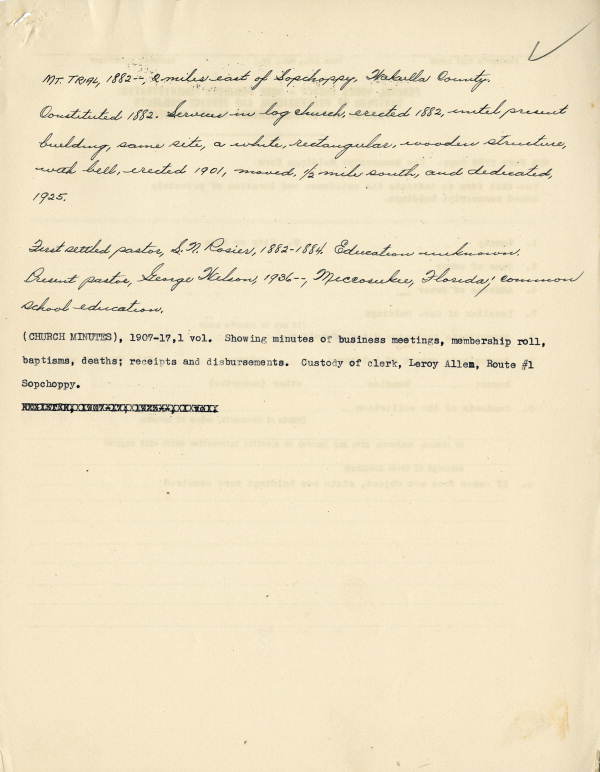 MT. TRIAL, 1882--, 2 miles east of Sopchoppy, Wakulla County.
Constituted 1882. Services in log church, erected 1882, until present
building, same site, a white, rectangular, wooden structure,
with bell, erected 1901, moved, 1/2 mile south, and dedicated,
1925.
First settled pastor, S. N. Rosier, 1882-1884. Education unknown.
Present pastor, George Wilson, 1936--, Miccosukee, Florida; common
school education.
(CHURCH MINUTES), 1907-17,1 vol. Showing minutes of business meetings, membership roll,
baptisms, deaths; receipts and disbursements. Custody of clerk, Leroy Allen, Route #1
Sopchoppy.
REGISTER, 1907-17, 1 vol.